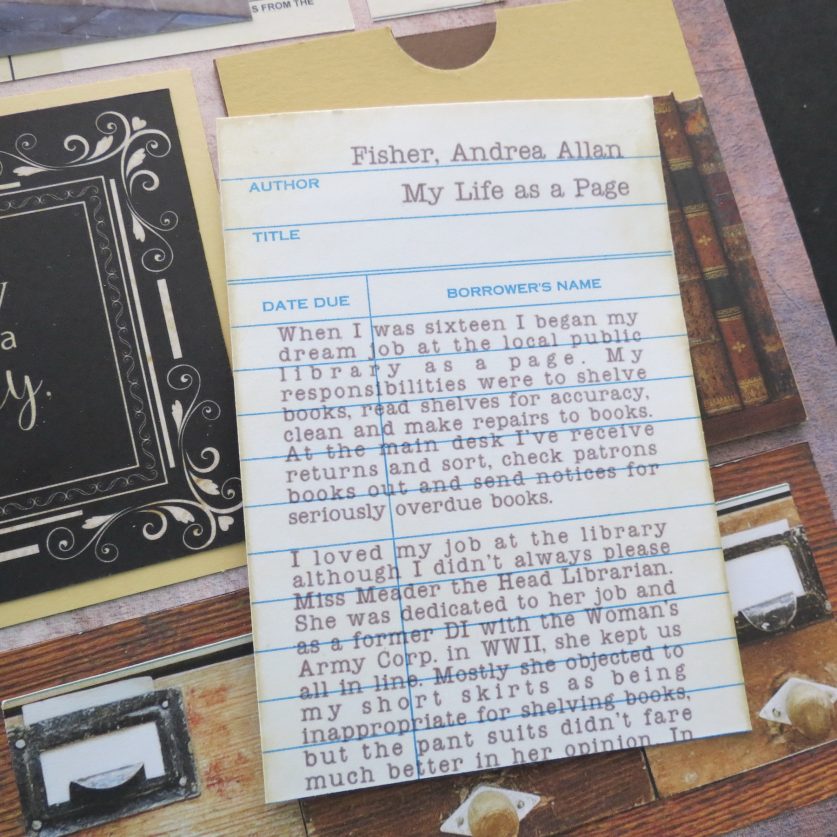 S FROM THE
y
a
y.
Fisher, Andrea Allan
AUTHOR
My Life as a Page
TITLE
DATE DUE BORROWER'S NAME
When I was sixteen I began my
dream job at the local public
library as a page. My
responsibilities were to shelve
books, read shelves for accuracy,
clean and make repairs to books.
At the main desk I've receive
returns and sort, check patrons
books out and send notices for
seriously overdue books.
I loved my job at the library
although I didn't always please
Miss Meader the Head Librarian.
She was dedicated to her job and
as a former DI with the Woman's
Army Corp, in WWII, she kept us
all in line. Mostly she objected to
my short skirts as being
inappropriate for shelving books,
but the pant suits didn't fare
much better in her opinion. In